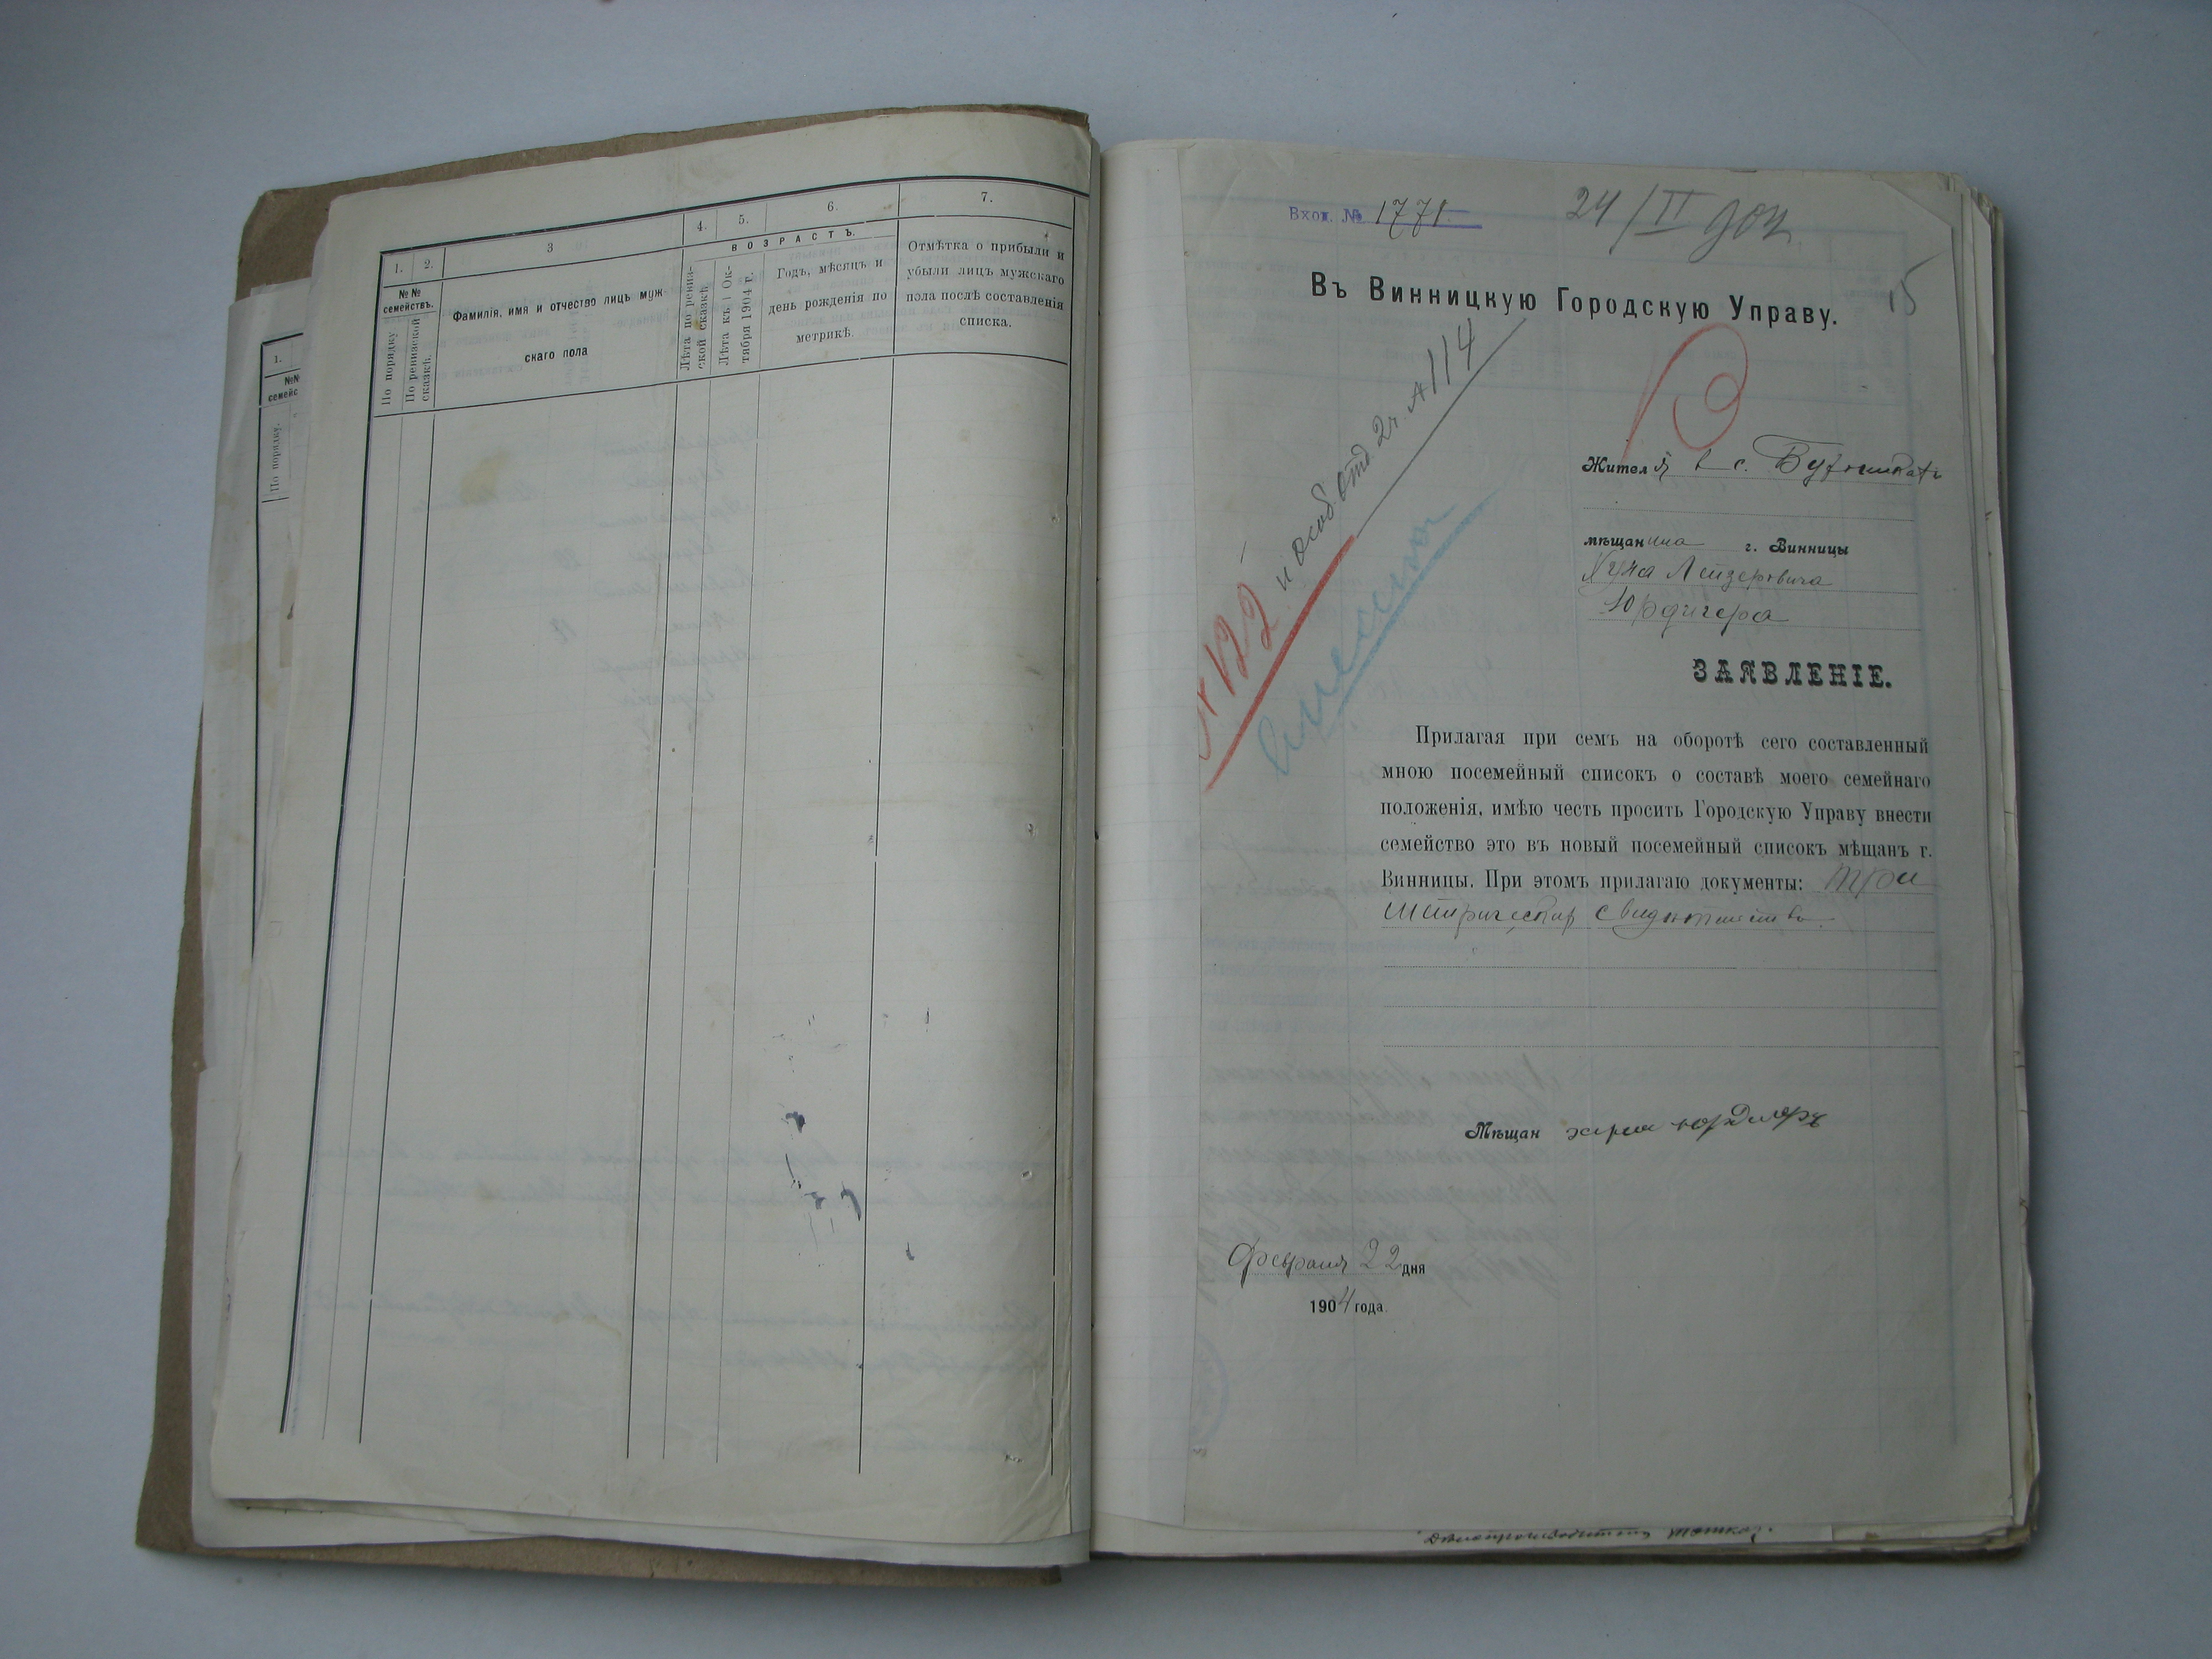 1.
№№
семейс
По порядку.
1.
2.
3
4.
5.
6.
7.
№№
семействъ.
По порядку
По ревизской
сказкѣ.
Фамилія, имя и отчество лицъ муж-
скаго пола
ВОЗРАСТЪ.
Лѣта по ревиз-
ской сказкѣ.
Лѣта къ 1 Ок-
тября 1904 г.
Годъ, мѣсяцъ и
день рожденія по
метрикѣ.
Отмѣтка о прибыли и
убыли лицъ мужскаго
пола послѣ составленія
списка.
Вход. № 1771.
24/II 904
15
Въ Винницкую Городскую Управу.
№ 122 и особ. отд. 2 ч. № 114
Жител в с.
мѣщанина г. Винницы
Лейзеровича
Юрдигера
ЗАЯВЛЕНІЕ.
Прилагая при семъ на оборотѣ сего составленный
мною посемейный списокъ о составѣ моего семейнаго
положенія, имѣю честь просить Городскую Управу внести
семейство это въ новый посемейный списокъ мѣщанъ г.
Винницы. При этомъ прилагаю документы: три
метрическихъ свидѣтельства.
Мѣщан
Февраля 22 дня
1904 года.
Дѣлопроизводитель